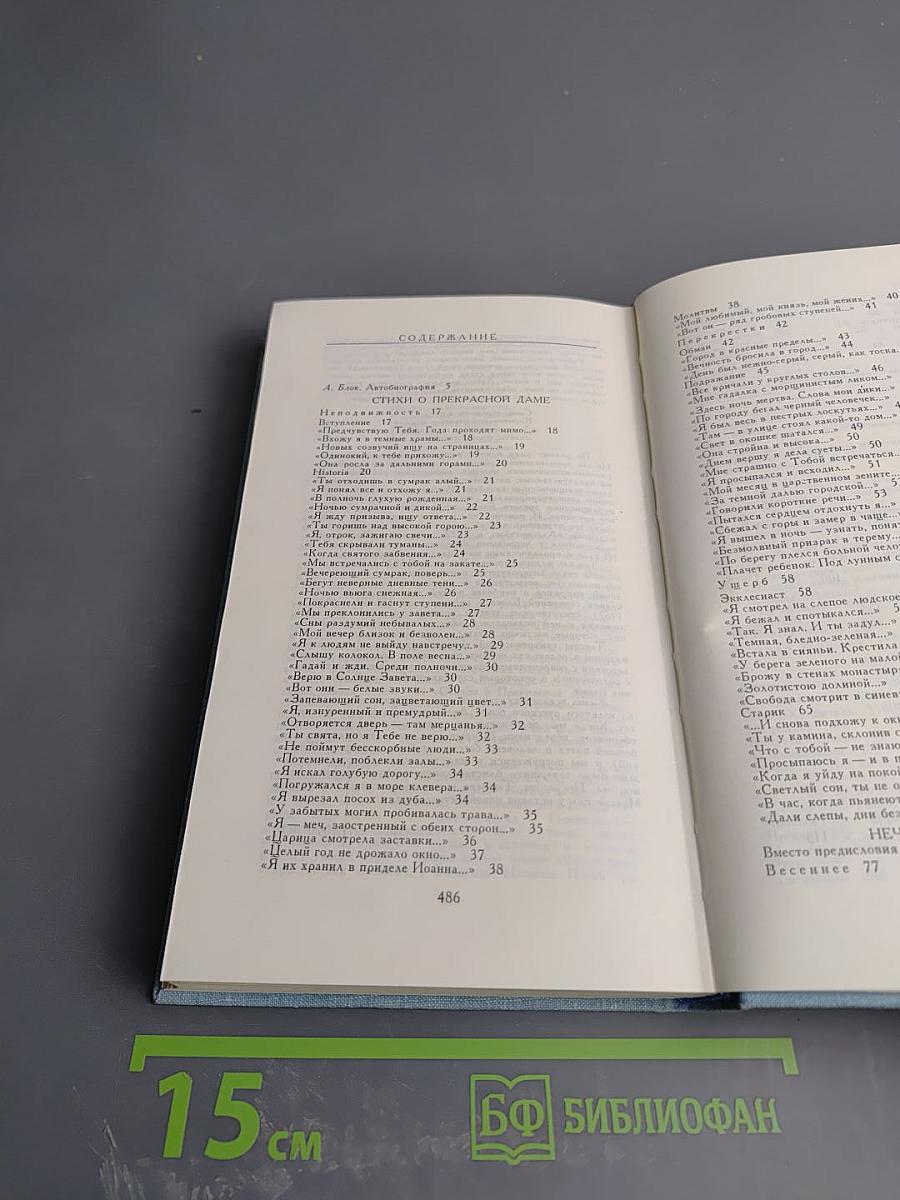 СОДЕРЖАНИЕ
А. Блок. Автобиография 5
СТИХИ О ПРЕКРАСНОЙ ДАМЕ
Неподвижность 17
Вступление 17
«Предчувствую Тебя. Года проходят мимо...» 18
«Вхожу я в темные храмы...» 18
«Новых созвучий ищу на страницах...» 19
«Одинокий, к тебе прихожу...» 19
«Она росла за дальними горами...» 20
Historia 20
«Ты отходишь в сумрак алый...» 21
«Я понял все и отхожу я...» 21
«В полночь глухую рожденная...» 21
«Ночью сумрачной и дикой...» 22
«Я жду призыва, ищу ответа...» 22
«Ты горишь над высокой горою...» 23
«Я, отрок, зажигаю свечи...» 23
«Тебя скрывали туманы...» 24
«Когда святого забвения...» 24
«Мы встречались с тобой на закате...» 25
«Вечереющий сумрак, поверь...» 25
«Бегут неверные дневные тени...» 26
«Ночью вьюга снежная...» 26
«Покраснели и гаснут ступени...» 27
«Мы преклонились у завета...» 27
«Сны раздумий небывалых...» 28
«Мой вечер близок и безволен...» 28
«Я к людям не выйду навстречу...» 29
«Слышу колокол. В поле весна...» 29
«Гадай и жди. Среди полночи...» 30
«Верю в Солнце Завета...» 30
«Вот они — белые звуки...» 30
«Запевающий сон, зацветающий цвет...» 31
«Я, изнуренный и премудрый...» 31
«Отворяется дверь — там мерцанья...» 32
«Ты свята, но я Тебе не верю...» 32
«Не поймут бесскорбные люди...» 33
«Потемнели, поблекли залы...» 33
«Я искал голубую дорогу...» 34
«Погружался я в море клевера...» 34
«Я вырезал посох из дуба...» 34
«У забытых могил пробивалась трава...» 35
«Я — меч, заостренный с обеих сторон...» 35
«Царица смотрела заставки...» 36
«Целый год не дрожало окно...» 37
«Я их хранил в приделе Иоанна...» 38
486
Молитвы 38
«Мой любимый, мой князь, мой жених...» 40
«Вот он — ряд гробовых ступеней...» 41
Перекрестки 42
Обман 42
«Город в красные пределы...» 43
«Вечность бросила в город...» 44
«День был нежно-серый, серый, как тоска.
Подражание 45
«Все кричали у круглых столов...» 46
«Мне гадалка с морщинистым ликом...»
«Здесь ночь мертва. Слова мои дики...»
«По городу бегал черный человечек...»
«Я был весь в пестрых лоскутьях...» 4
«Там — в улице стоял какой-то дом...»
«Свет в окошке шатался...» 49
«Она стройна и высока...» 50
«Днем вершу я дела суеты...» 50
«Мне страшно с Тобой встречаться...
«Я просыпался и всходил...» 51
«Мой месяц в царственном зените...
«За темной далью городской...» 5
«Говорили короткие речи...» 53
«Пытался сердцем отдохнуть я...»
«Сбежал с горы и замер в чаще...
«Я вышел в ночь — узнать, понят
«Безмолвный призрак в терему...
«По берегу плелся больной чело
«Плачет ребенок. Под лунным с
Ущерб 58
Экклесиаст 58
«Я смотрел на слепое людское
«Я бежал и спотыкался...» 5
«Так. Я знал. И ты задул...»
«Темная, бледно-зеленая...»
«Встала в сияньи. Крестила
«У берега зеленого на малой
«Брожу в стенах монастыр
«Золотистою долиной...»
«Свобода смотрит в синев
Старик 65
«...И снова подхожу к ок
«Ты у камина, склонив с
«Что с тобой — не знаю
«Просыпаюсь я — и в п
«Когда я уйду на покой
«Светлый сон, ты не о
«В час, когда пьянеют
«Дали слепы, дни без
НЕЧ
Вместо предисловия
Весеннее 77
15 см
БФ БИБЛИОФАН